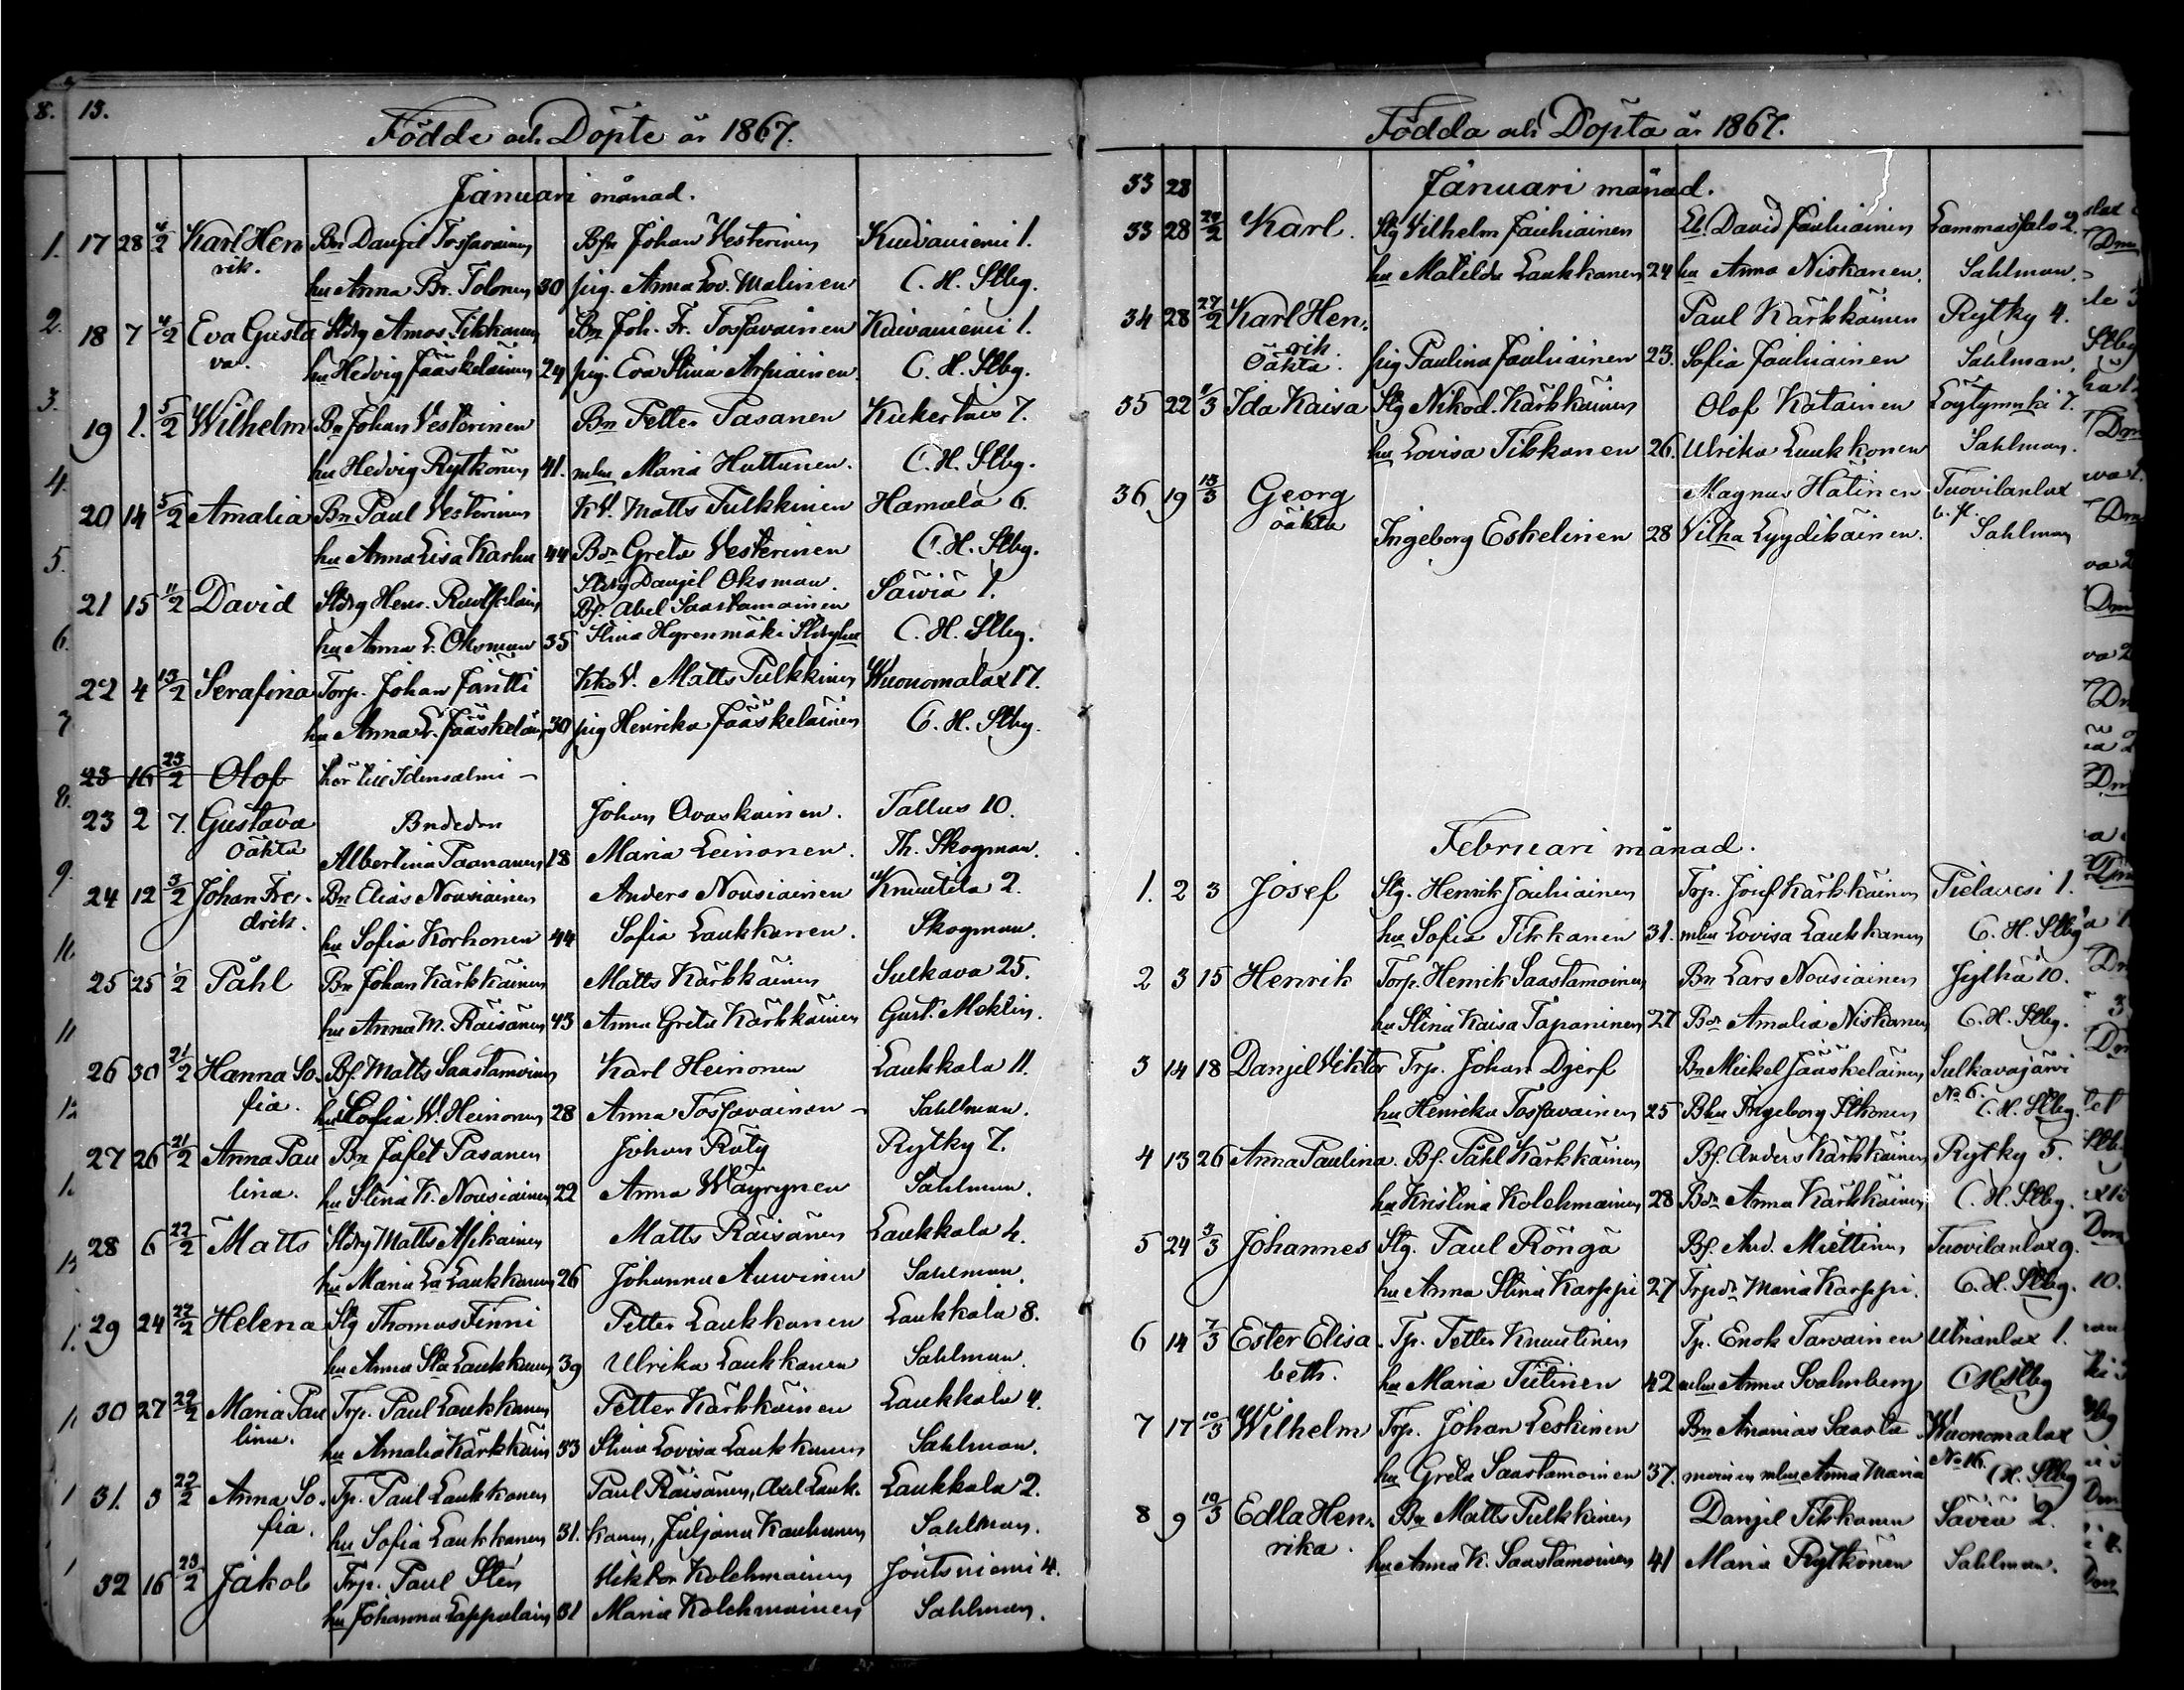 8. 13.
Födde och Döpte år 1867.
Januari månad.
1. 17 28 4/2 Karl Hen Bn Danjel Tossavainen Bfn Johan Vesterinen Kuivaniemi 1.
rik. hu Anna Br. Tolonen 30 pig. Anna Lov. Malinen C. H. Slbg.
2. 18 7 4/2 Eva Gusta Sldrg Amos Tikkanen Bn Joh. Fr. Tossavainen Kuivaniemi 1.
va. hu Hedvig Jääskeläinen 24 pig. Eva Stina Arpiainen. C. H. Slbg.
3. 19 1. 5/2 Wilhelm Bn Johan Vesterinen Bn Petter Pasanen Kukertaus 7.
hu Hedvig Rytkönen 41. mhu Maria Huttunen. C. H. Slbg.
4. 20 14 5/2 Amalia Bn Paul Vesterinen K.V. Matts Pulkkinen Hamula 6.
hu Anna Lisa Karhu 44 Bdr Greta Vesterinen C. H. Slbg.
5. Sldrg Danjel Oksman.
21 15 11/2 David Sldrg Henr. Bf. Abel Saastamoinen Säviä 1.
6. hu Anna L. Oksman 35 Stina Hyrenmäki Sldrghu C. H. Slbg.
22 4 13/2 Serafina Torp. Johan Jäntti Kko V. Matts Pulkkinen Wuonomalax 17.
7 hu Anna L. Jääskeläin 30 pig Henrika Jääskeläinen C. H. Slbg.
23 16 23/2 Olof hör till Idensalmi –
8. 23 2 7. Gustava Bndedr Johan Ovaskainen. Tallus 10.
oäkta Albertina Paananen 18 Maria Leinonen. Th. Skogman.
9. 24 12 3/2 Johan Fre- Bn Elias Nousiainen Anders Nousiainen Knuutila 2.
drik. hu Sofia Korhonen 44 Sofia Laukkanen. Skogman.
25 25 1/2 Påhl Bn Johan Kärkkäinen Matts Kärkkäinen Sulkava 25.
11 hu Anna M. Räisänen 43 Anna Greta Kärkkäinen Gust. Meklin.
26 30 21/2 Hanna So- Bf. Matts Saastamoinen Karl Heinonen Laukkala 11.
12 fia. hu Sofia W. Heinonen 28 Anna Tossavainen – Sahlman.
27 26 21/2 Anna Pau Bn Jafet Pasanen Johan Räty Rytky 7.
lina. hu Stina K. Nousiainen 22 Anna Wäyrynen Sahlman.
28 6 22/2 Matts Sldrg Matts Matts Räisänen Laukkala 4.
13 hu Maria Laukkanen 26 Johanna Auvinen Sahlman.
29 24 22/2 Helena Slg Thomas Finni Petter Laukkanen Laukkala 8.
hu Anna Sta Laukkanen 39 Ulrika Laukkanen Sahlman.
30 27 22/2 Maria Pau Trp. Paul Laukkanen Petter Kärkkäinen Laukkala 4.
lina. hu Amalia Kärkkäin 33 Stina Lovisa Laukkanen Sahlman.
31. 3 22/2 Anna So- Tp. Paul Laukkanen Paul Räisänen, Axel Lauk- Laukkala 2.
fia. hu Sofia Laukkanen 31. kanen, Juljana Kauhanen Sahlman.
32 16 23/2 Jakob Trp. Paul Sten Viktor Kolehmainen Joutsniemi 4.
hu Johanna Lappalain 31 Maria Kolehmainen Sahlman.
Födda och Döpta år 1867.
33 28 Januari månad.
33 28 24/2 Karl. Slg Vilhelm Jauhiainen Eb. David Jauhiainen Lammassalo 2.
hu Matilda Laukkanen 24 hu Anna Niskanen. Sahlman.
34 28 27/2 Karl Hen- Paul Kärkkäinen Rytky 4.
rik
Oäkta. pig Paulina Jauhiainen 23. Sofia Jauhiainen Sahlman.
35 22 11/3 Ida Kaisa Slg Nikod. Kärkkäinen Olof Katainen Löytynmäki 7.
hu Lovisa Tikkanen 26. Ulrika Laukkanen Sahlman.
36 19 13/3 Georg Magnus Hätinen Tuovilanlax
oäkta Ingeborg Eskelinen 28 Vilha Lyydikäinen. Sahlman
Februari månad.
1. 2 3 Josef Slg. Henrik Jauhiainen Trp. Josef Kärkkäinen Pielavesi 1.
hu Sofia Tikkanen 31. mhu Lovisa Laukkanen C. H. Slbg
2 3 15 Henrik Torp. Henrik Saastamoinen Bn Lars Nousiainen Jylhä 10.
hu Stina Kaisa Tapaninen 27 Bdr Amalia Niskanen C. H. Slbg.
3 14 18 Danjel Viktor Trp. Johan Djerf Bn Mickel Jääskeläinen Sulkavajärvi
hu Henrika Tossavainen 25 Bhu Ingeborg Itkonen No 6. C. H. Slbg.
4 13 26 Anna Paulina. Bf. Påhl Kärkkäinen Bf. Anders Kärkkäinen Rytky 5.
hu Kristina Kolehmainen 28 Bdr Anna Kärkkäinen C. H. Slbg.
5 24 3/3 Johannes Slg. Paul Röngä Bf. And. Miettinen Tuovilanlax 9.
hu Anna Stina Karppi 27 Trpdr Maria Karppi. C. H. Slbg.
6 14 7/3 Ester Elisa- Tp. Petter Knuutinen Tp. Enok Tarvainen Utrianlax 1.
beth. hu Maria Tiitinen 42 mhu Anna Svahnberg C H Slbg
7 17 10/3 Wilhelm Trp. Johan Leskinen Bn Ananias Saasta Wuonomalax
hu Greta Saastamoinen 37. moinen mhu Anna Maria No 16. C. H. Slbg
8 9 10/3 Edla Hen- Bn Matts Pulkkinen Danjel Tikkanen Säviä 2.
rika. hu Anna K. Saastamoinen 41 Maria Rytkönen Sahlman.